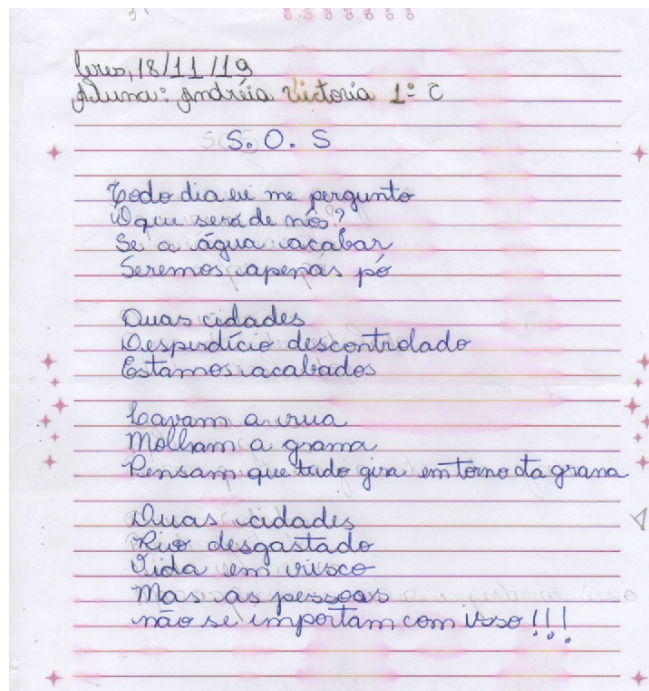 Ceres, 18/11/19
Aluna: Andréia Victoria 1º C
S.O.S
Todo dia eu me pergunto
O que será de nós?
Se a água acabar
Seremos apenas pó
Duas cidades
Desperdício descontrolado
Estamos acabados
Lavam a rua
Molham a grama
Pensam que tudo gira em torno da grana
Duas cidades
Rio desgastado
Vida em risco
Mas as pessoas
não se importam com isso!!!